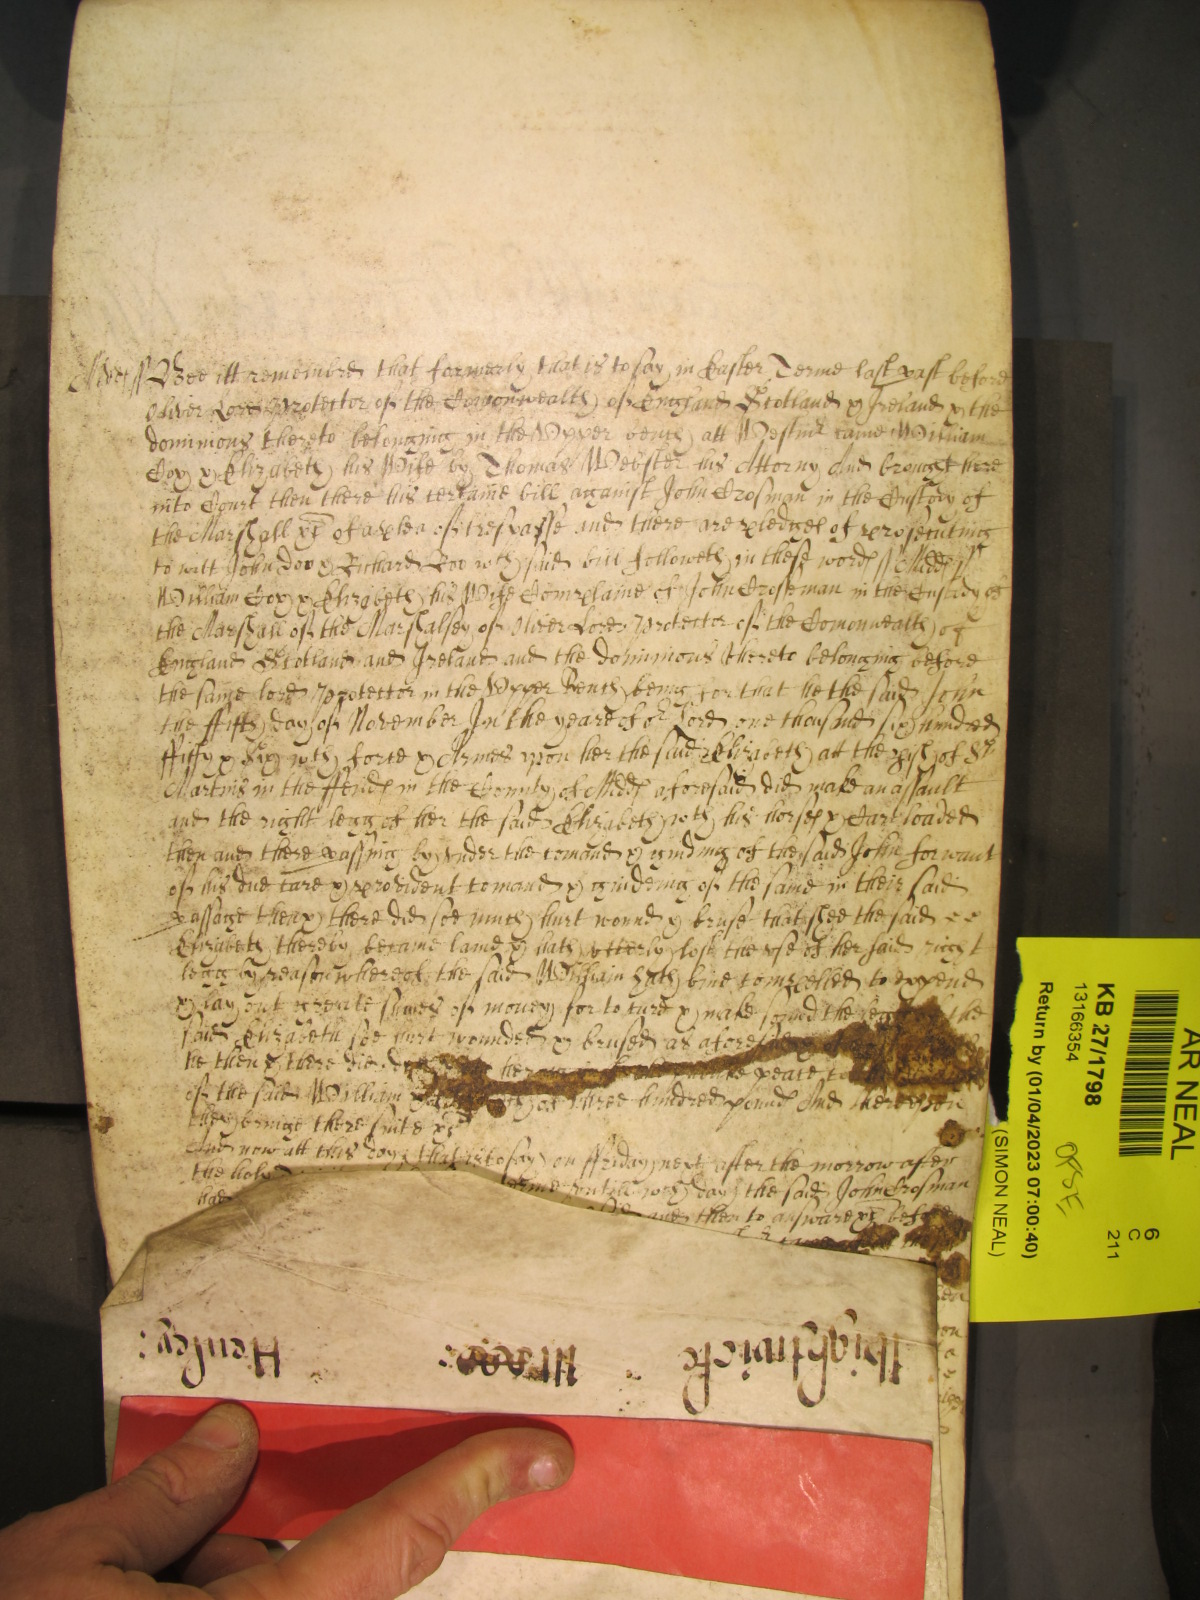 Midds ss Bee itt remembred that formerly that is to say in Easter Terme last past before
Oliver Lord Protector of the Comonwealth of England Scotland & Ireland & the
dominions thereto belonging in the Upper bench att Westmr came William
Cox & Elizabeth his Wife by Thomas Webster his Attorny And brought here
into Court then there his certaine bill against John Crosman in the Custody of
the Marshall &c of a plea of trespasse and there are pledges of prosecuting
to witt John Doo & Richard Roo wch said bill followeth in these words ss Midds ss
William Cox & Elizabeth his Wife Complaine of John Croseman in the Custody of
the Marshall of the Marshalsey of Oliver Lord Protector of the Comonwealth of
England Scotland and Ireland and the dominions thereto belonging before
the same lord Protector in the Upper Bench being for that he the said John
the ffifth day of November In the yeare of or Lord one thousand six hundred
ffifty & Six wth force & Armes upon her the said Elizabeth att the pish of St
Martins in the ffeilds in the County of Midds aforesaid did make an assault
and the right legg of her the said Elizabeth wth his horses & Cart loaded
then and there passing by under the comand & guiding of the said John for want
of his due care & provident comand & guideing of the same in their said
passage then & there did soe much hurt wound & bruse that shee the said
Elizabeth thereby became lame & hath utterly lost the use of her said right
legg by reason whereof the said William hath bine compelled to expend
& lay out greate sumes of money for to cure & make sound the legg of the
said Elizabeth soe hurt wounded & brused as aforesaid &
he then & there did her publike peace to
of the said William of three hundred pounds And thereupon
they bringe there suite &c
And now att this day that is to say on ffriday next after the morrow after
the holy terme untill wch day the said John Crosman
had and then to answare &c before
Hightwick
Henley:
AR NEAL
KB 27/1798
13166354
Return by (01/04/2023 07:00:40)
(SIMON NEAL)
6
C
211